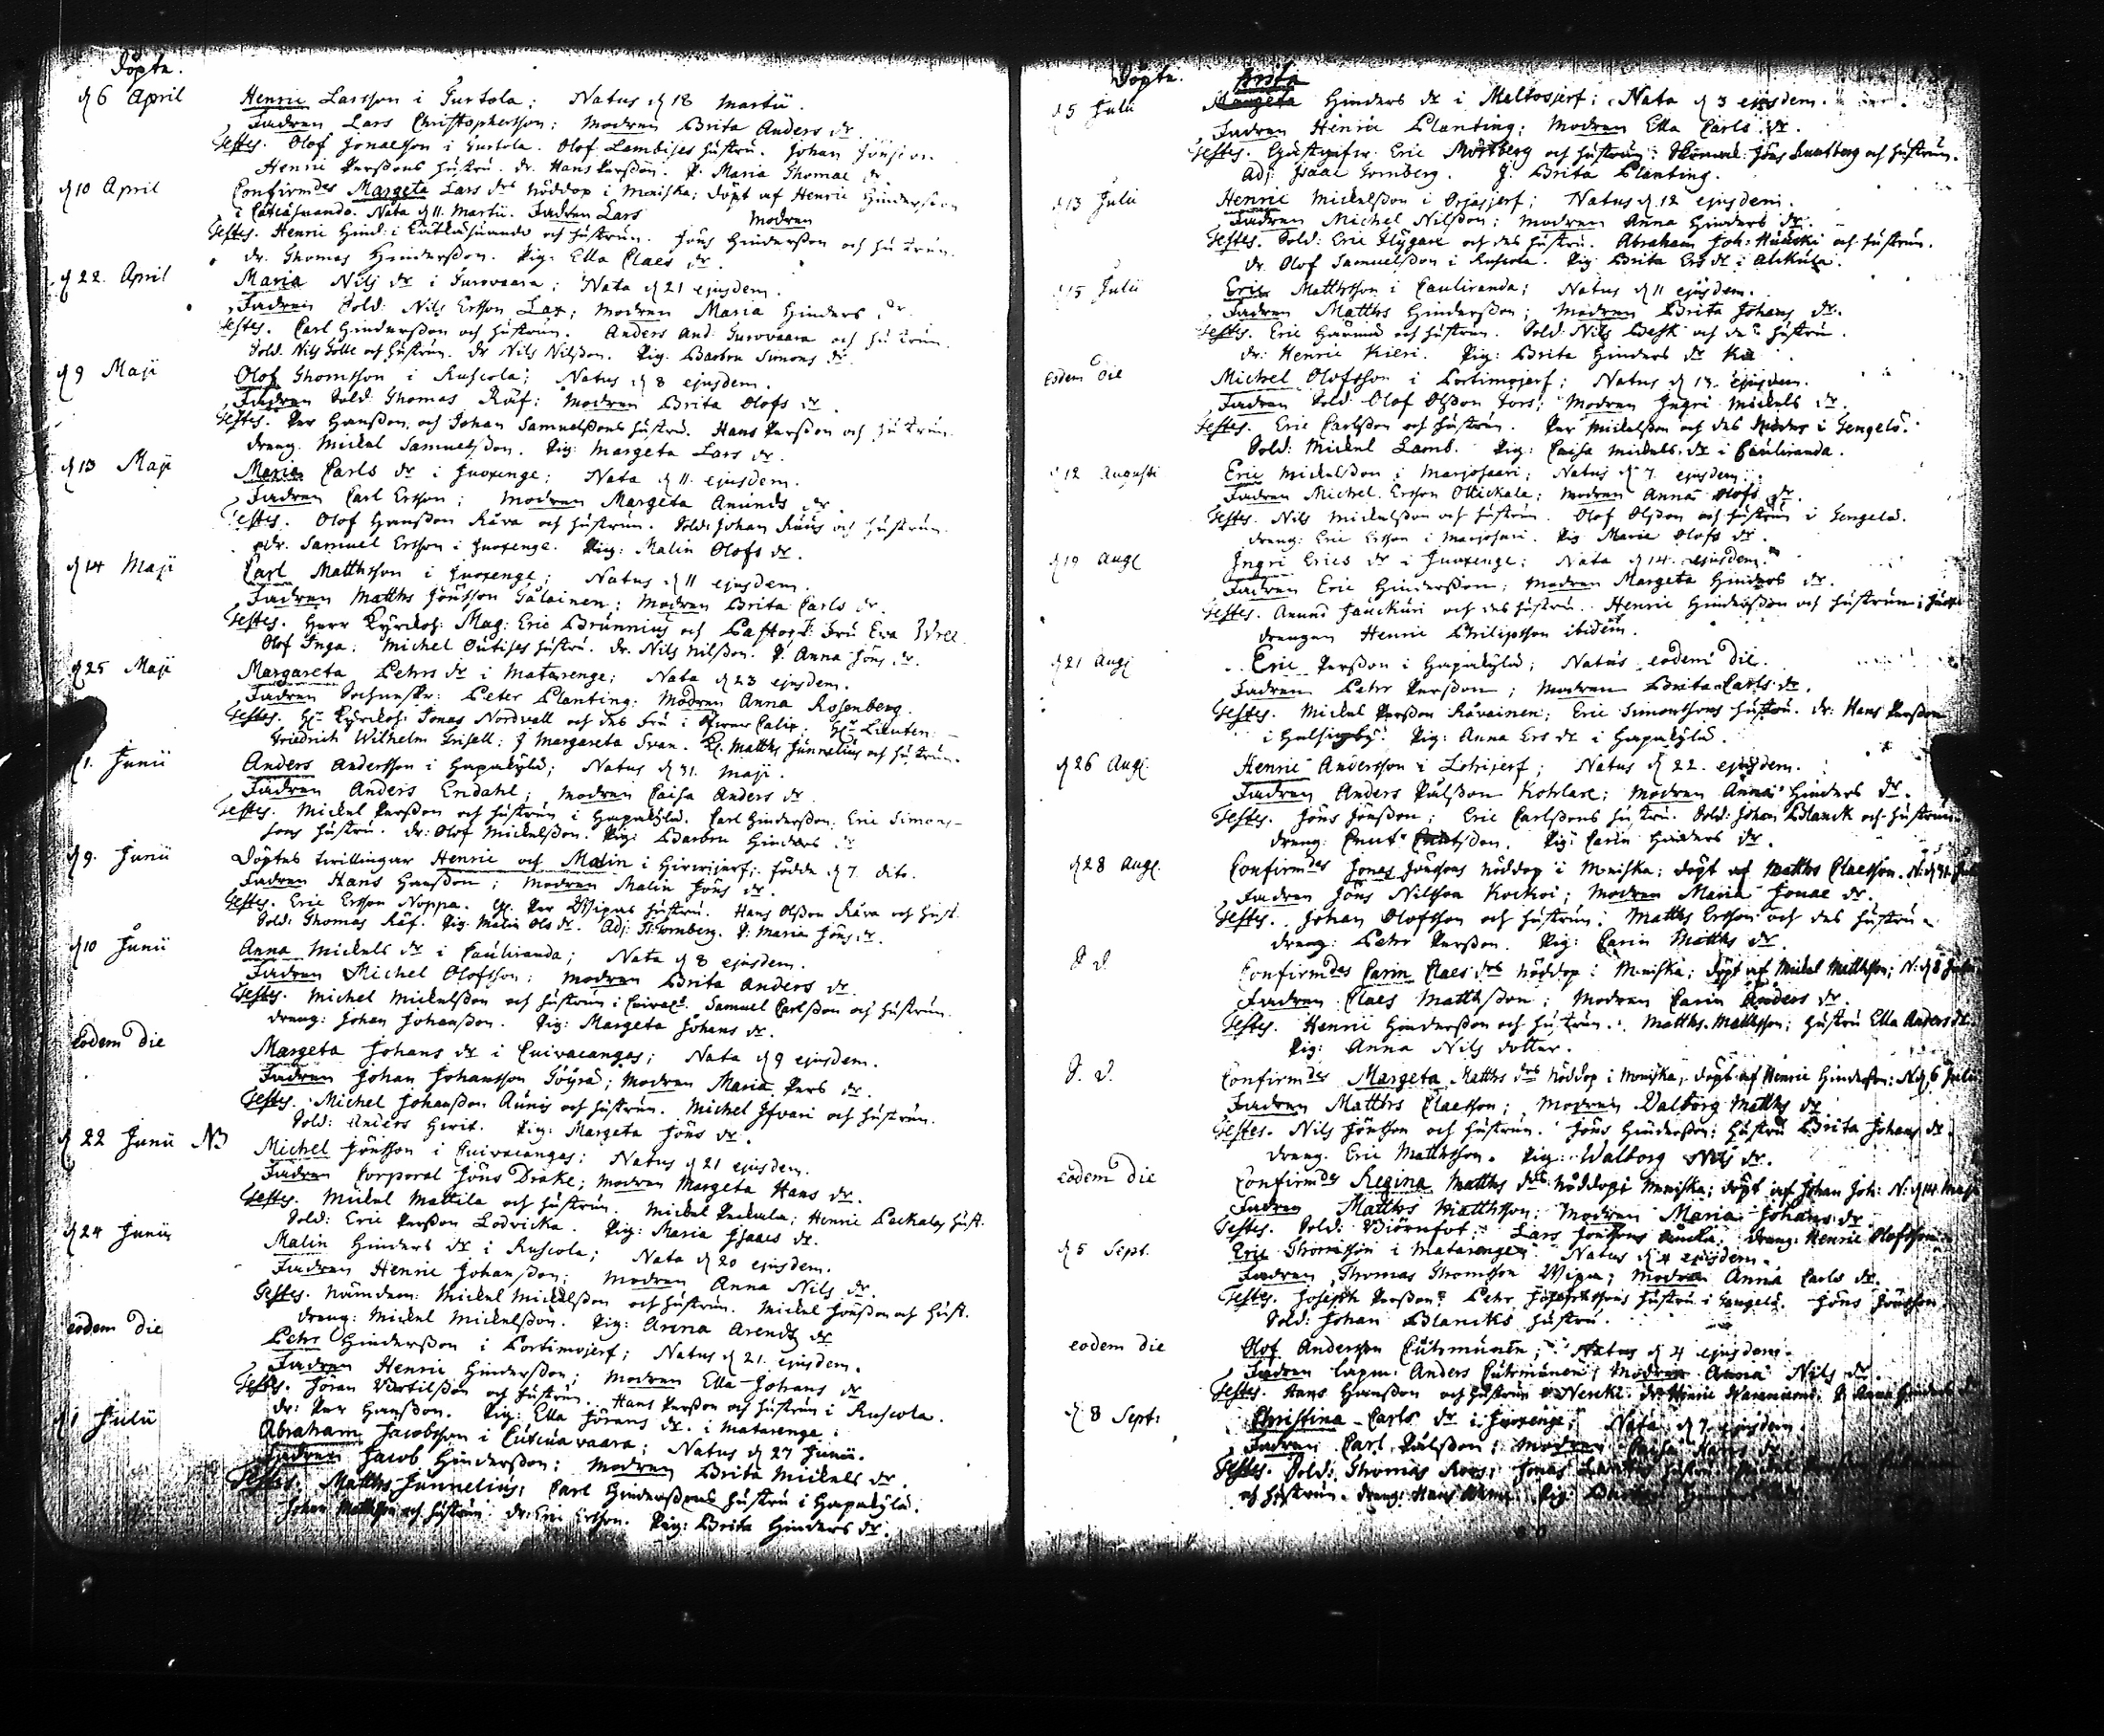 Döpte.
d 6 April Henric Larsson i Turtola; Natus d 18 Martii.
Fadren Lars Christophersson; Modren Brita Anders dr.
Testes. Olof Jonaesson i Turtola. Olof Lambises hustru. Johan Jönsson.
Henric Perssons hustru. dr. Hans Persson. P. Maria Thomae dr
d 10 April Confirmdes Margeta Lars drs nöddop i Moniska; döpt af Henric Hindersson
i Nata d 11. Martii. Fadren Lars Modren
Testes. Henric Hind: i och hustrun. Jöns Hindersson och hustrun.
dr. Thomas Hindersson. Pig: Ella Claes dr.
d 22. April Maria Nils dr i Turovaara; Nata d 21 ejusdem.
Fadren Sold: Nils Ersson Lax; Modren Maria Hinders dr.
Testes. Carl Hindersson och hustrun. Anders And: Turovaara och hustrun.
Sold. Nils Golle och hustrun. dr Nils Nilsson. Pig. Barbro Simons dr.
d 9 Maji Olof Thomsson i Ruscola; Natus d 8 ejusdem.
Fadren Sold: Thomas Räf; Modren Brita Olofs dr.
Testes. Per Hansson, och Johan Samuelssons hustru. Hans Persson och hustrun.
dreng. Mickel Samuelsson. Pig: Margeta Lars dr.
d 13 Maji Maria Carls dr i Juoxenge; Nata d 11. ejusdem.
Fadren Carl Ersson; Modren Margeta Anunds dr.
Testes. Olof Hansson Råva och hustrun. Sold: Johan Ruus och hustrun.
dr. Samuel Ersson i Juoxenge. Pig: Malin Olofs dr.
d 14 Maji Carl Matthsson i Juoxenge; Natus d 11 ejusdem.
Fadren Matths Jönsson Gålainen; Modren Brita Carls dr.
Testes. Herr Kyrckoh: Mag: Eric Brunnius och Pastors Fru Eva
Olof Inga; Michel Outises hustru. dr. Nils Nilsson. P. Anna Jöns dr.
d 25 Maji Margareta Pehrs dr i Matarenge; Nata d 23 ejusdem.
Fadren Sochnskr: Peter Planting; Modren Anna Rosenberg.
Testes. Hr Kyrckoh: Jonas Nordvall och des fru i Öfver Calix. Hr Lieuten:
Friedrich Wilhelm Grisell; J Margareta Svan. Kl. Matths Junnelius och hustrun.
d 1. Junii Anders Andersson i Hapakylä; Natus d 31. Maji.
Fadren Anders Endahl; Modren Caisa Anders dr
Testes. Mickel Persson och hustrun i Hapakylä. Carl Hindersson; Eric Simons-
sons hustru. dr: Olof Mickelsson. Pig: Barbro Hinders dr
d 9. Junii Döptes twillingar Henric och Malin i Hirvijerf; födde d 7. dito.
Fadren Hans Hansson; Modren Malin Jöns dr.
Testes. Eric Ersson Noppa. Per Wipas hustru. Hans Olsson Råva och hust.
Sold: Thomas Räf. Pig. Malin Ols dr. Adj: Is: Tornberg. P: Maria Jöns dr.
d 10 Junii Anna Mickels dr i Pauliranda; Nata d 8 ejusdem.
Fadren Michel Olofsson; Modren Brita Anders dr.
Testes. Michel Mickelsson och hustrun i Samuel Carlsson och hustrun.
dreng: Johan Johansson. Pig: Margeta Johans dr.
eodem die Margeta Johans dr i Cuivacangas; Nata d 9 ejusdem.
Fadren Johan Johansson Töyrä; Modren Maria Pers dr.
Testes. Michel Johansson Aunis och hustrun. Michel Ifvari och hustrun.
Sold: Anders Hwit. Pig: Margeta Jöns dr.
d 22 Junii NB Michel Jönsson i Cuivacangas; Natus d 21 ejusdem.
Fadren Corporal Jöns Drake; Modren Margeta Hans dr.
Testes. Mickel Mattila och hustrun. Mickel Henric Peckalas hust.
Sold: Eric Persson Lodvicka. Pig: Maria Isaacs dr.
d 24 Junii Malin Hinders dr i Ruscola; Nata d 20 ejusdem.
Fadren Henric Johansson; Modren Anna Nils dr.
Testes. Nämndem: Mickel Mickelsson och hustrun. Mickel Jönsson och hust.
dreng: Mickel Mickelsson. Pig: Anna Arends dr
eodem die Pehr Hindersson i Portimojerf; Natus d 21. ejusdem.
Fadren Henric Hindersson; Modren Ella Johans dr
Testes. Jöran Bertilsson och hustrun. Hans Persson och hustrun i Ruscola.
dr: Per Hansson. Pig: Ella Jörans dr. i Matarenge.
d 1 Julii Abraham Jacobsson i vaara; Natus d 27 Junii.
Fadren Jacob Hindersson; Modren Brita Mickels dr.
Testes. Matths Junnelius; Carl Hinderssons hustru i Hapakylä.
Johan Matthsson och hustrun. dr: Eric Ersson. Pig: Brita Hinders dr.
Döpte. Brita
d 5 Julii Margeta Hinders dr i Meltosjerf; Nata d 3 ejusdem.
Fadren Henric Planting; Modren Ella Carls dr.
Testes. Gästgifvr. Eric Mörtberg och hustrun; Jöns Luntberg och hustrun.
Adj: Isaac Tornberg. J. Brita Planting.
d 13 Julii Henric Mickelsson i Orjasjerf; Natus d 12 ejusdem.
Fadren Michel Nilsson; Modren Anna Hinders dr.
Testes. Sold: Eric Flygare och des hustru. Abraham Joh: och hustrun.
dr. Olof Samuelsson i Ruscola. Pig Brita Ers dr i Alikula.
d 15 Julii Eric Matthsson i Pauliranda; Natus d 11 ejusdem.
Fadren Matths Hindersson; Modren Brita Johans dr.
Testes. Eric och hustrun. Sold: Nils Besk och des hustru.
dr: Henric Kieri. Pig: Brita Hinders dr
eodem die Michel Olofsson i Portimojerf; Natus d 13. ejusdem.
Fadren Sold: Olof Olsson Fors; Modren Ingri Mickels dr.
Testes. Eric Carlsson och hustrun. Per Mickelsson och des i Gengelä.
Sold: Mickel Lamb. Pig: Caisa Mickels dr i Pauliranda.
d 12 Augusti Eric Mickelsson i Marjosaari; Natus d 7. ejusdem.
Fadren Michel Ersson Ollickala; Modren Anna Olofs dr.
Testes. Nils Mickelsson och hustrun. Olof Olsson och hustrun i Gengelä.
dreng: Eric Ersson i Marjosari. Pig Marie Olofs dr.
d 19 Aug: Ingri Erics dr i Juoxenge; Nata d 14. ejusdem.
Fadren Eric Hindersson; Modren Margeta Hinders dr.
Testes. Anund Jauckuri och des hustru. Henric Hindersson och hustrun;
drengen Henric Philipsson ibidem.
d 21 Aug: Eric Persson i Hapakylä; Natus eodem die.
Fadren Pehr Persson; Modren Brita Carls dr.
Testes. Mickel Persson Råvainen; Eric Simonssons hustru. dr: Hans Persson
i Helsingby. Pig: Anna Ers dr i Hapakylä.
d 26 Aug: Henric Andersson i Lohijerf; Natus d 22. ejusdem.
Fadren Anders Pålsson Kohlare; Modren Anna Hinders dr.
Testes. Jöns Jönsson; Eric Carlssons hustru. Sold: Johan Blanck och hustrun.
dreng: Cnut Pig: Carin Hinders dr.
d 28 Aug: Confirmdes Jonas Jönssons nöddop i Moniska; döpt af Matths Claesson. N: d 31 Juli
Fadren Jöns Nilsson Kockoi; Modren Maria Jonae dr.
Testes. Johan Olofsson och hustrun; Matths Ersson och des hustru.
dreng: Pehr Persson. Pig: Carin Matths dr.
J. d. Confirmdes Carin Claes drs nöddop i Moniska; döpt af Mickel Matthsson;
Fadren Claes Matthsson; Modren Carin Anders dr.
Testes. Henric Hindersson och hustrun. Matths Matthsson; hustru Ella Anders dr.
Pig: Anna Nils dotter.
J. d. Confirmdes Margeta Matths drs nöddop i Moniska; döpt af Henric Hindersson: N: d 6 Julii
Fadren Matths Claesson; Modren Valborg Matths dr
Testes. Nils Jönsson och hustrun. Jöns Hindersson; hustru Brita Johans dr.
dreng. Eric Matthsson. Pig: Walborg Nils dr.
eodem die Confirmdes Regina Matths drs nöddop i Moniska; döpt af Johan Joh: N: d 14. Maji
Fadren Matths Matthsson; Modren Maria Johans dr.
Testes. Sold: Biörnfot; Lars Jönssons dreng: Henric Olofsson.
d 5 Sept. Eric Thomsson i Matarenge; Natus d 4 ejusdem.
Fadren Thomas Thomsson Wipa; Modren Anna Carls dr.
Testes. Joseph Persson; Pehr Josephssons hustru i Gengelä. Jöns Jönsson.
Sold: Johan Blancks hustru.
eodem die Olof Andersson Natus d 4 ejusdem.
Fadren Lapm: Anders Modren Anna Nils dr.
Testes. Hans Hansson och hustrun
d 8 Sept: Christina Carls dr i Juoxenge; Nata d 7. ejusdem.
Fadren Carl Pålsson; Modren Caisa Hans dr
Testes. Sold: Thomas Roos; Jonas
och hustrun. dreng: Hans Pig: